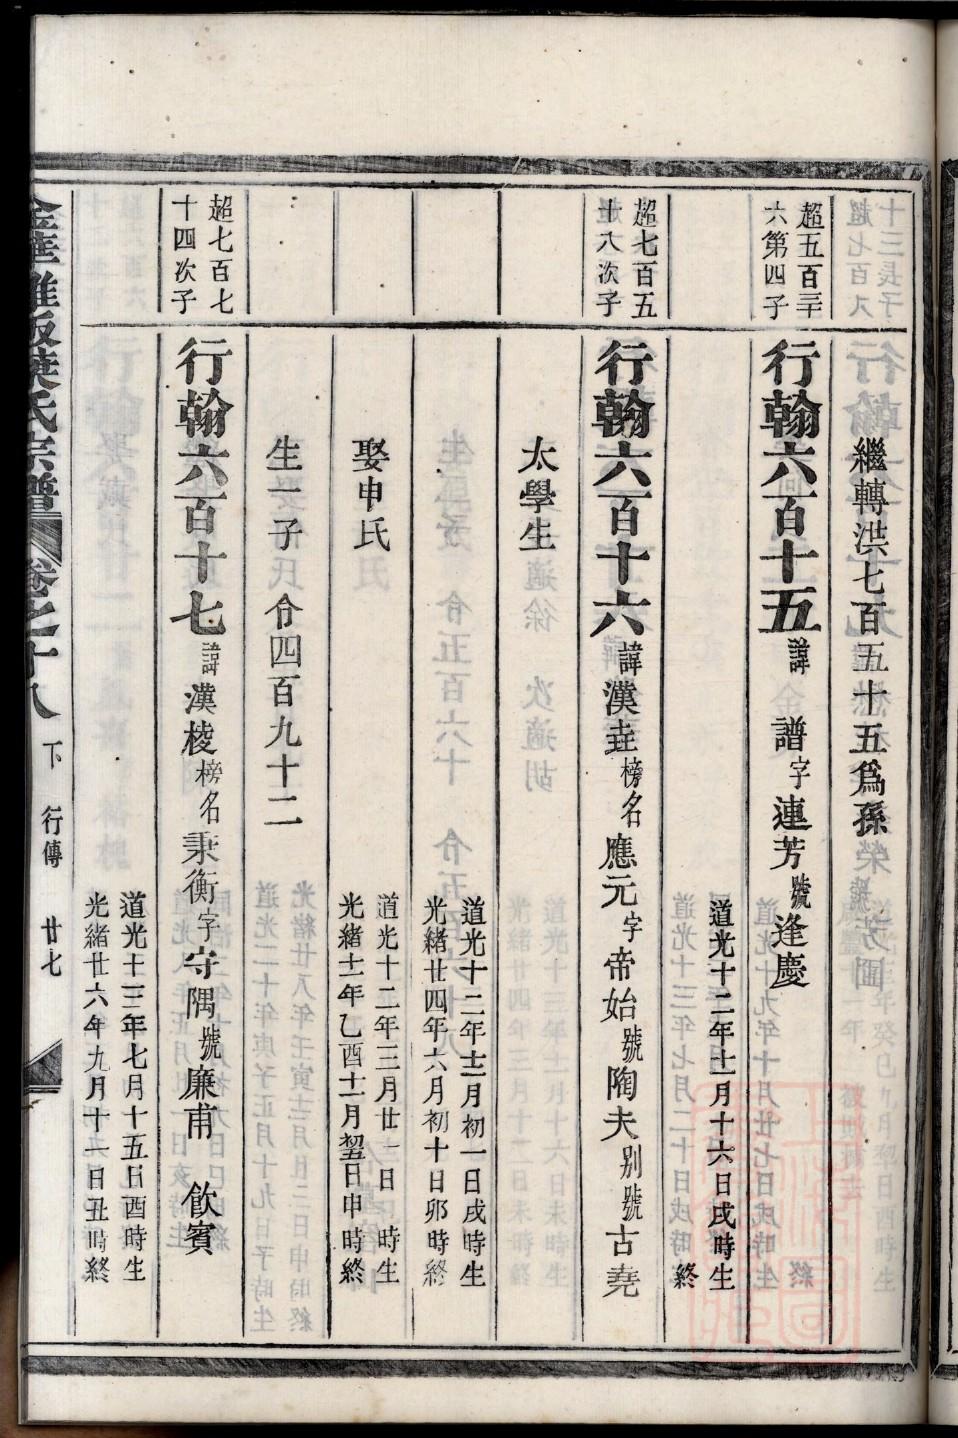 繼轉洪七百五十五爲孫
超五百三十
六第四子
行翰六百十五 諱 譜 字連芳 號逢慶
道光十二年十一月十六日戌時生
終
超七百五
十八次子
行翰六百十六 諱漢垚 榜名應元 字帝始 號陶夫 别號古堯
太學生
道光十二年十二月初一日戌時生
光緒廿四年六月初十日卯時終
娶申氏
道光十二年三月廿一日 時生
光緒十一年乙酉十一月 日申時終
生一子 令四百九十二
超七百七
十四次子
行翰六百十七 諱漢棱 榜名秉衡 字守隅 號廉甫 飲賓
道光十三年七月十五日酉時生
光緒廿六年九月十一日丑時終
金華 氏宗譜 卷之十八 下 行傳 廿七